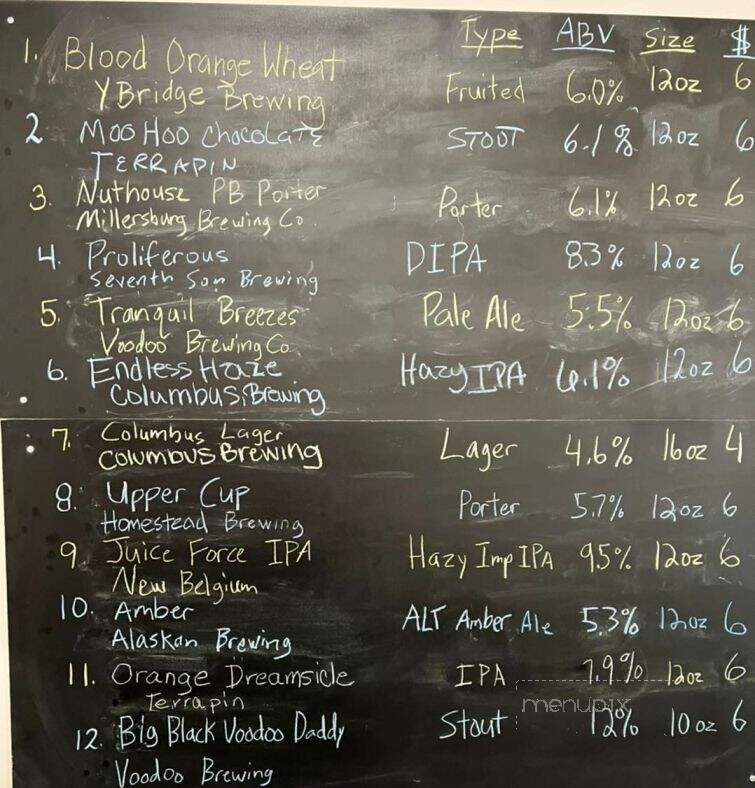 Type ABV Size $
1. Blood Orange Wheat Fruited 6.0% 12oz 6
Y Bridge Brewing
2 Moo Hoo Chocolate Stout 6.1% 12oz 6
Terrapin
3. Nuthouse PB Porter Porter 6.1% 12oz 6
Millersburg Brewing Co.
4. Proliferous DIPA 8.3% 12oz 6
Seventh Son Brewing
5. Tranquil Breezes Pale Ale 5.5% 12oz 6
Voodoo Brewing Co
6. Endless Haze Hazy IPA 6.1% 12oz 6
Columbus Brewing
7. Columbus Lager Lager 4.6% 16oz 4
Columbus Brewing
8. Upper Cup Porter 5.7% 12oz 6
Homestead Brewing
9. Juice Force IPA Hazy Imp IPA 9.5% 12oz 6
New Belgium
10. Amber ALT Amber Ale 5.3% 12oz 6
Alaskan Brewing
11. Orange Dreamsicle IPA 7.9% 12oz 6
Terrapin
menupix
12. Big Black Voodoo Daddy Stout 12% 10oz 6
Voodoo Brewing